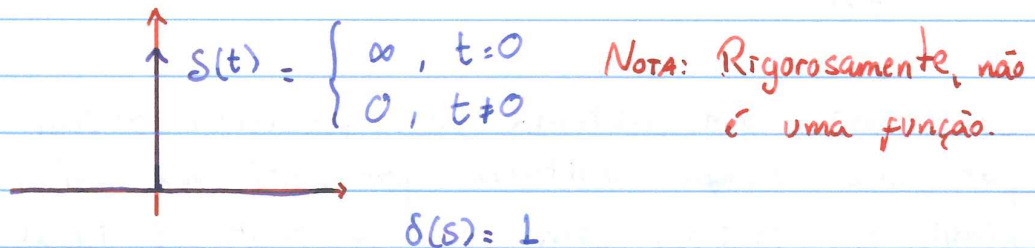 δ(t) = { ∞, t=0 NOTA: Rigorosamente, não
0, t≠0 é uma função.
δ(s) = 1